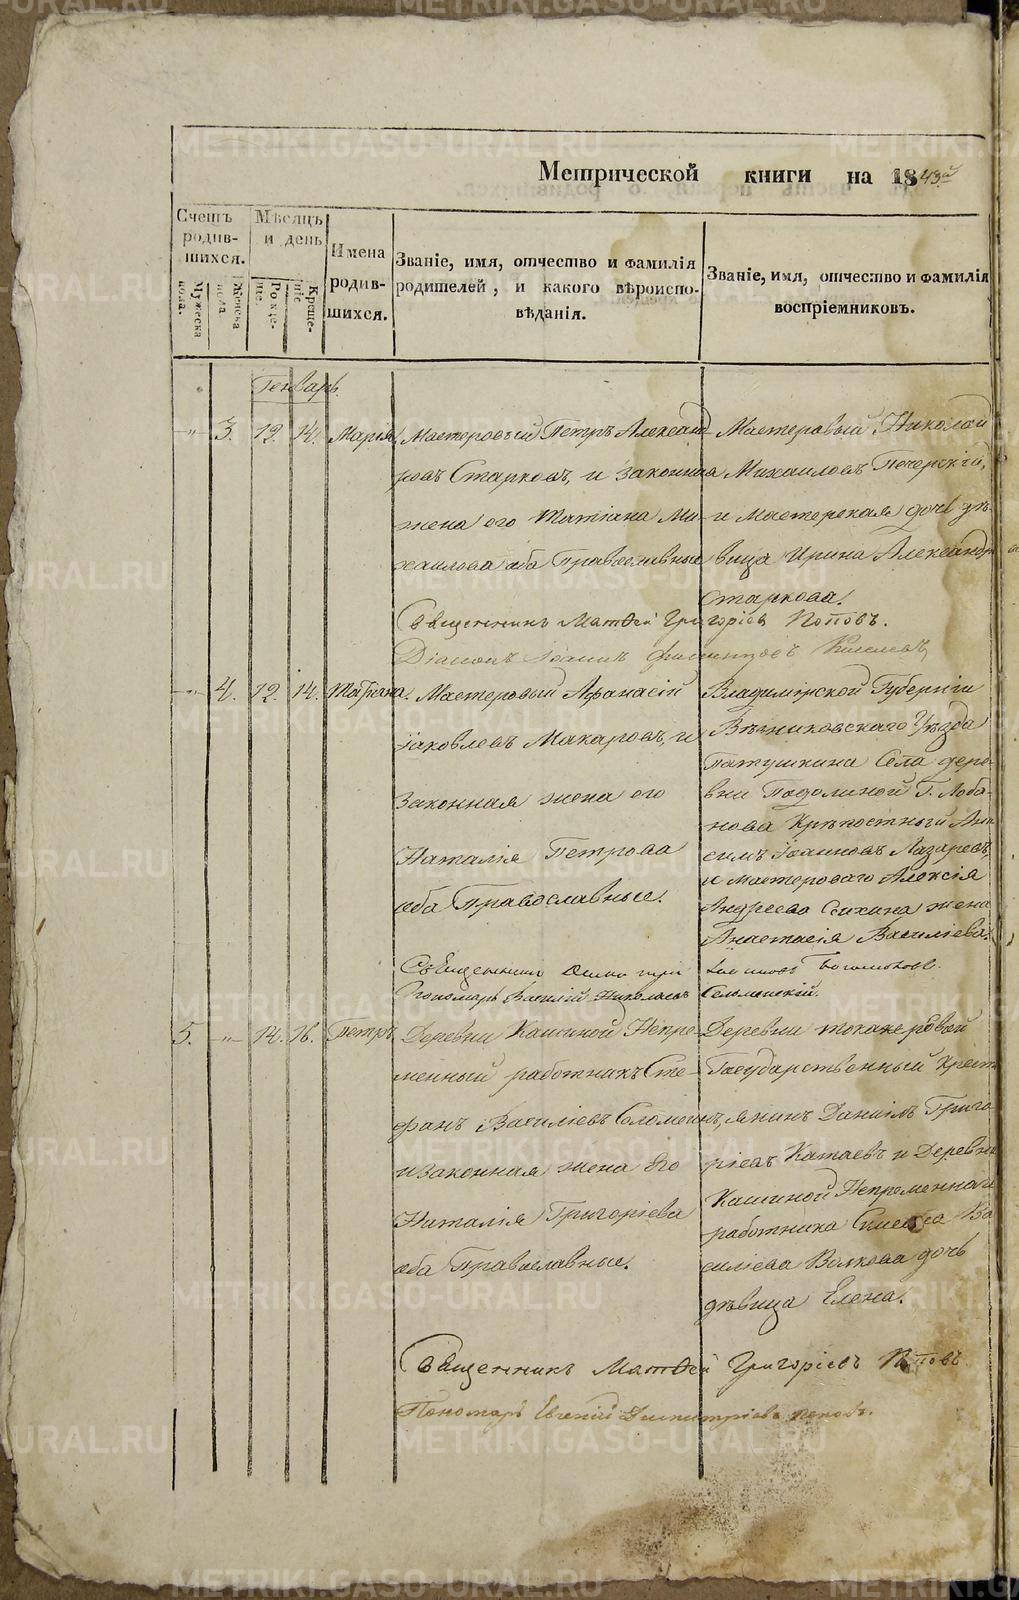 Метрической книги на 1843й
Счетъ родив-шихся.
Мѣсяцъ и день
Имена родив-шихся.
Званіе, имя, отчество и фамилія родителей, и какого вѣроиспо-вѣданія.
Званіе, имя, отчество и фамилія воспріемниковъ.
Мужеска пола.
Женска пола
Рожде-ніе.
Креще-ніе
Генварь.
-"- 3. 12. 14. Марія
Мастеровый Петръ Александ-
ровъ Старковъ, и законная
жена его Татіана Ми-
хаилова оба Православные
Мастеровый Николай
Михаиловъ Печерскій,
и Мастерская дочь дѣ-
вица Ирина Александр
Старкова.
Священникъ Матѳей Григоріевъ Поповъ.
Діаконъ Іоаннъ Киселевъ
-"- 4. 12. 14. Татіана.
Мастеровый Афанасій
Іаковлевъ Макаровъ, и
законная жена его
Наталія Петрова
оба Православные.
Владимірской Губерніи
Вязниковскаго Уѣзда
Патушкина Села дере-
вни Подолиной Г. Лоба-
нова Крѣпостный Ани-
симъ Іоанновъ Лазаревъ,
и мастероваго Алексія
Андреева Сычина жена
Анастасія Василіева.
Священникъ
Пономарь Василій Николаевъ Сельменскій.
5. -"- 14. 16. Петръ
Деревни Кашиной Непре-
менный работникъ Сте-
фанъ Василіевъ Соломеинъ,
и законная жена его
Наталія Григоріева
оба Православные.
Деревни Токаревой
Государственный Крест
янинъ Даніилъ Григо-
ріевъ Катаевъ и Деревни
Кашиной Непременнаго
работника Ва
силіева Волкова дочь
дѣвица Елена.
Священникъ Матѳей Григоріевъ Поповъ
Пономарь Евгеній Димитріевъ Поповъ.
METRIKI.GASO-URAL.RU